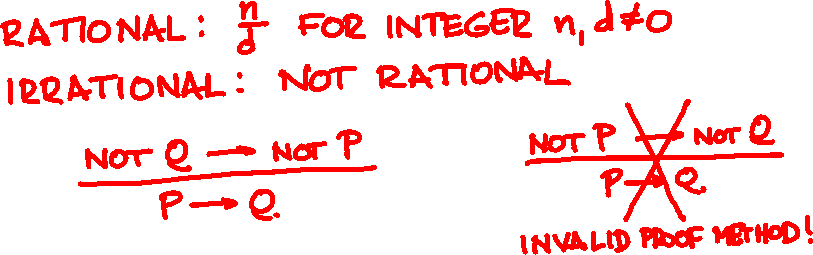 RATIONAL: n/d FOR INTEGER n, d≠0
IRRATIONAL: NOT RATIONAL
NOT Q → NOT P
P → Q.
NOT P → NOT Q
P → Q
INVALID PROOF METHOD!